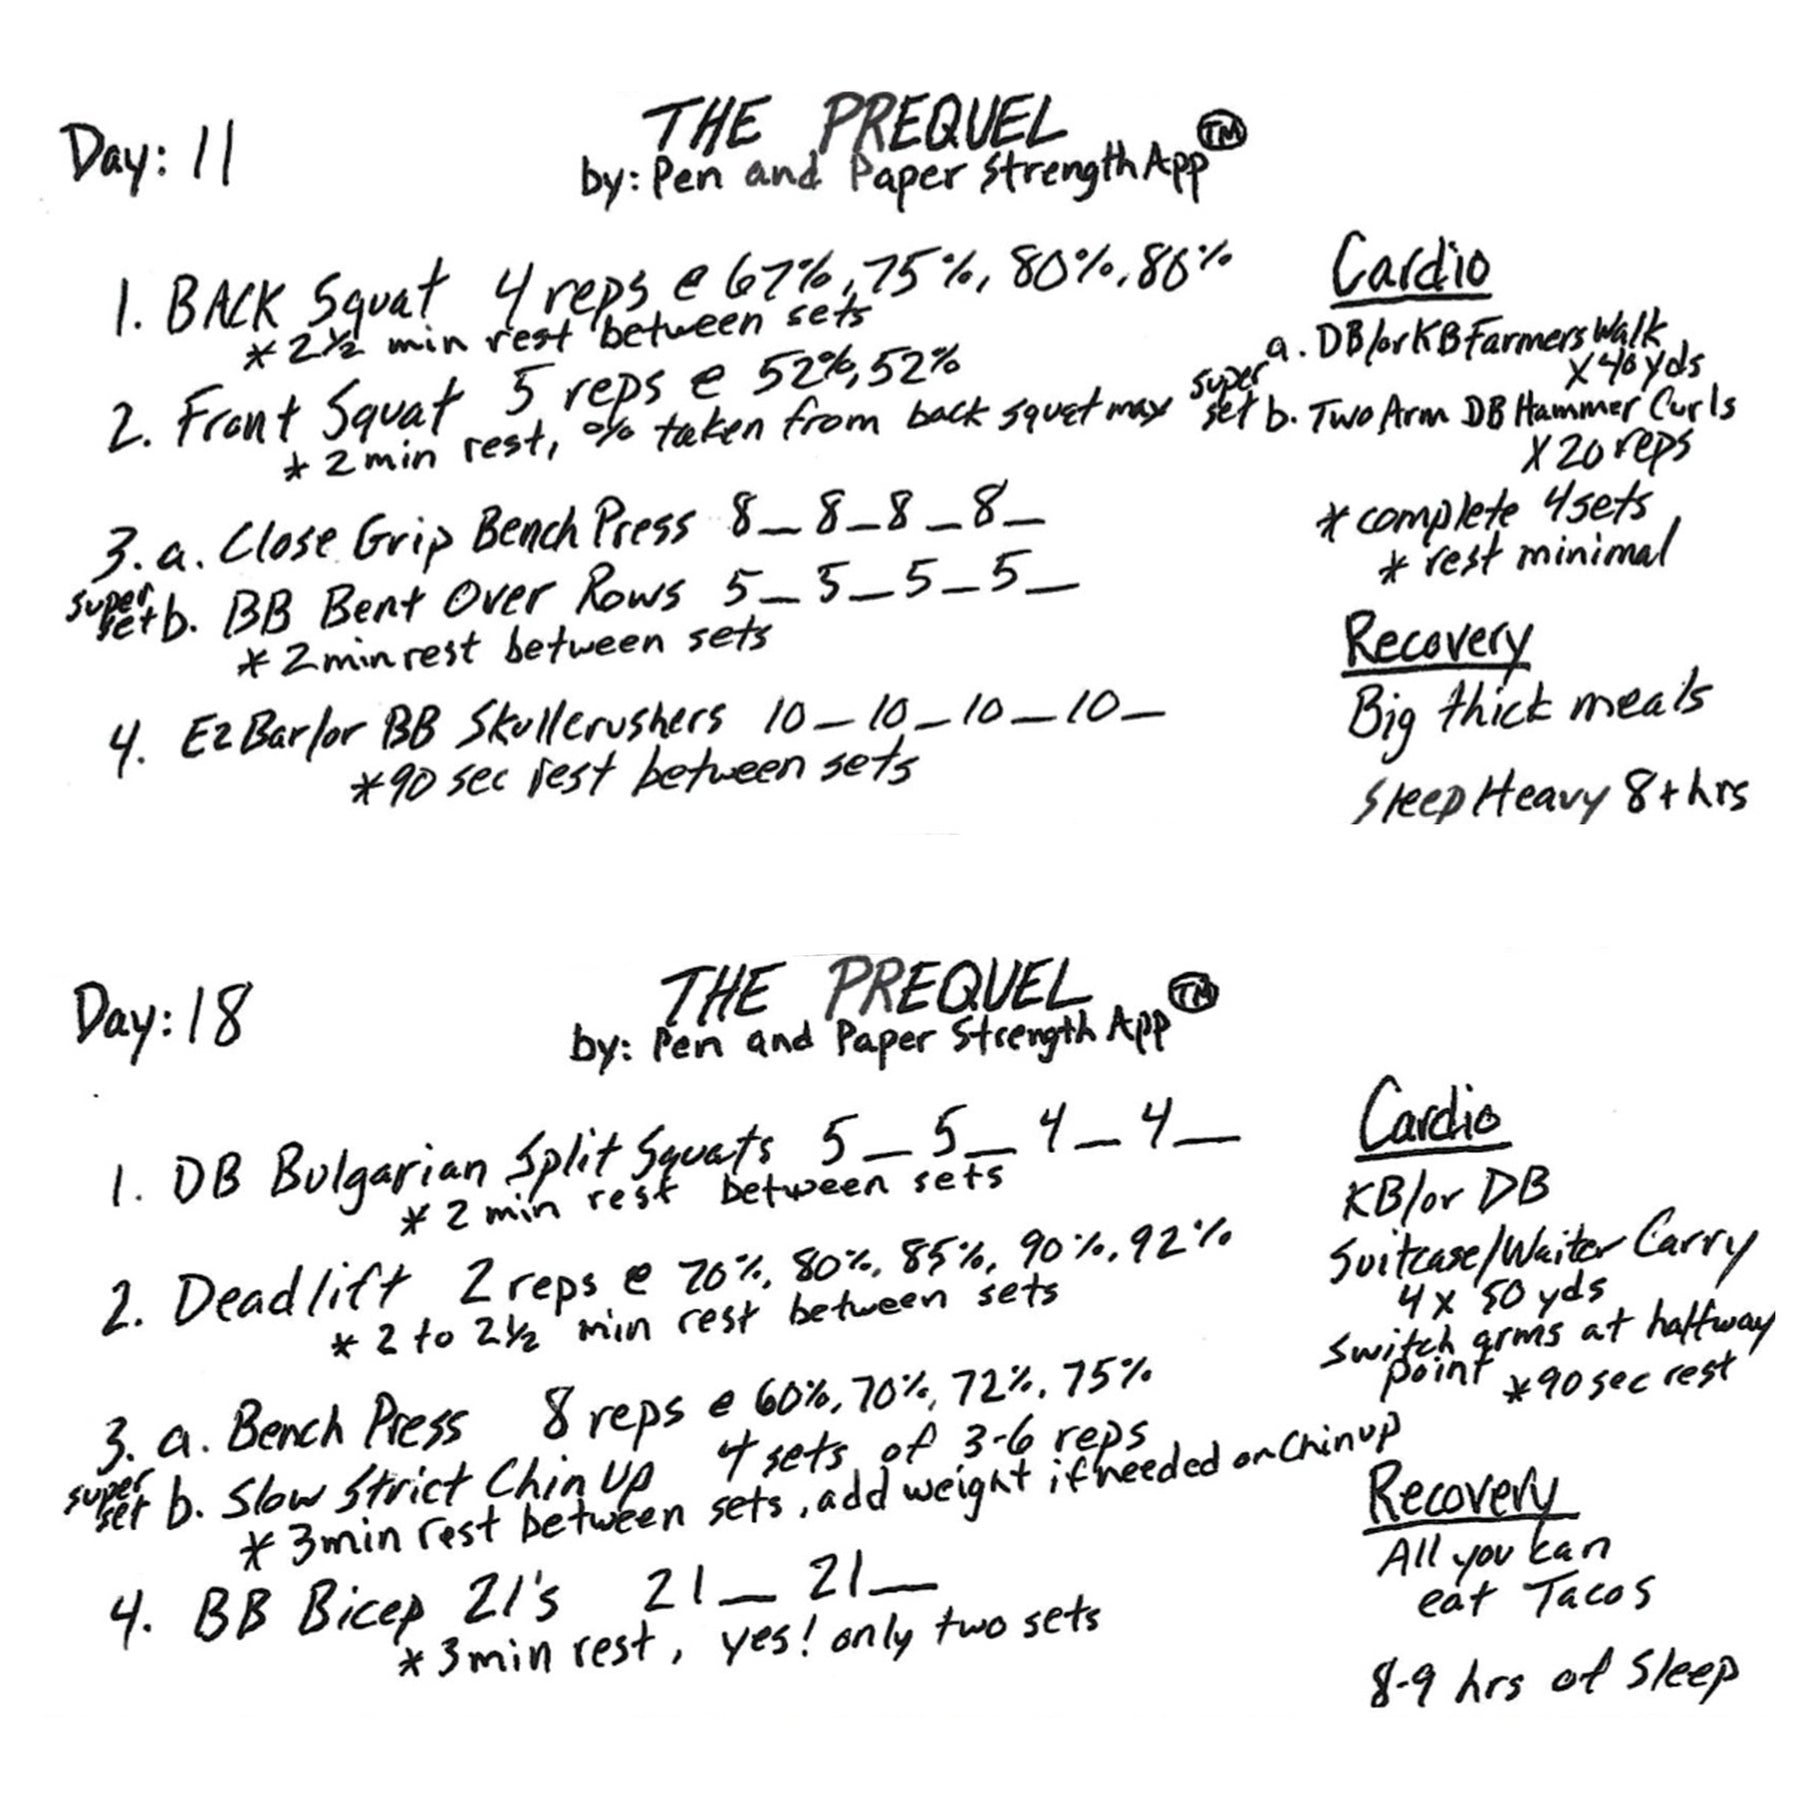 Day: 11
THE PREQUEL TM
by: Pen and Paper Strength App
1. BACK Squat 4 reps @ 67%, 75%, 80%, 86%
* 2 1/2 min rest between sets
2. Front Squat 5 reps @ 52%, 52%
* 2 min rest, % taken from back squat max
3. a. Close Grip Bench Press 8_ 8_ 8_ 8_
super set b. BB Bent Over Rows 5_ 5_ 5_ 5_
* 2 min rest between sets
4. EZ Bar/or BB Skullcrushers 10_ 10_ 10_ 10_
*90 sec rest between sets
Cardio
a. DB/or KB Farmers Walk
X 40 yds
super set b. Two Arm DB Hammer Curls
X 20 reps
* complete 4 sets
* rest minimal
Recovery
Big thick meals
Sleep Heavy 8+ hrs
Day: 18
THE PREQUEL TM
by: Pen and Paper Strength App
1. DB Bulgarian Split Squats 5_ 5_ 4_ 4_
* 2 min rest between sets
2. Deadlift 2 reps @ 70%, 80%, 85%, 90%, 92%
* 2 to 2 1/2 min rest between sets
3. a. Bench Press 8 reps @ 60%, 70%, 72%, 75%
super set b. Slow Strict Chin Up 4 sets of 3-6 reps
* 3 min rest between sets, add weight if needed on Chinup
4. BB Bicep 21's 21_ 21_
* 3 min rest, yes! only two sets
Cardio
KB/or DB
Suitcase/Waiter Carry
4 x 50 yds
switch arms at halfway
point *90 sec rest
Recovery
All you kan
eat Tacos
8-9 hrs of Sleep